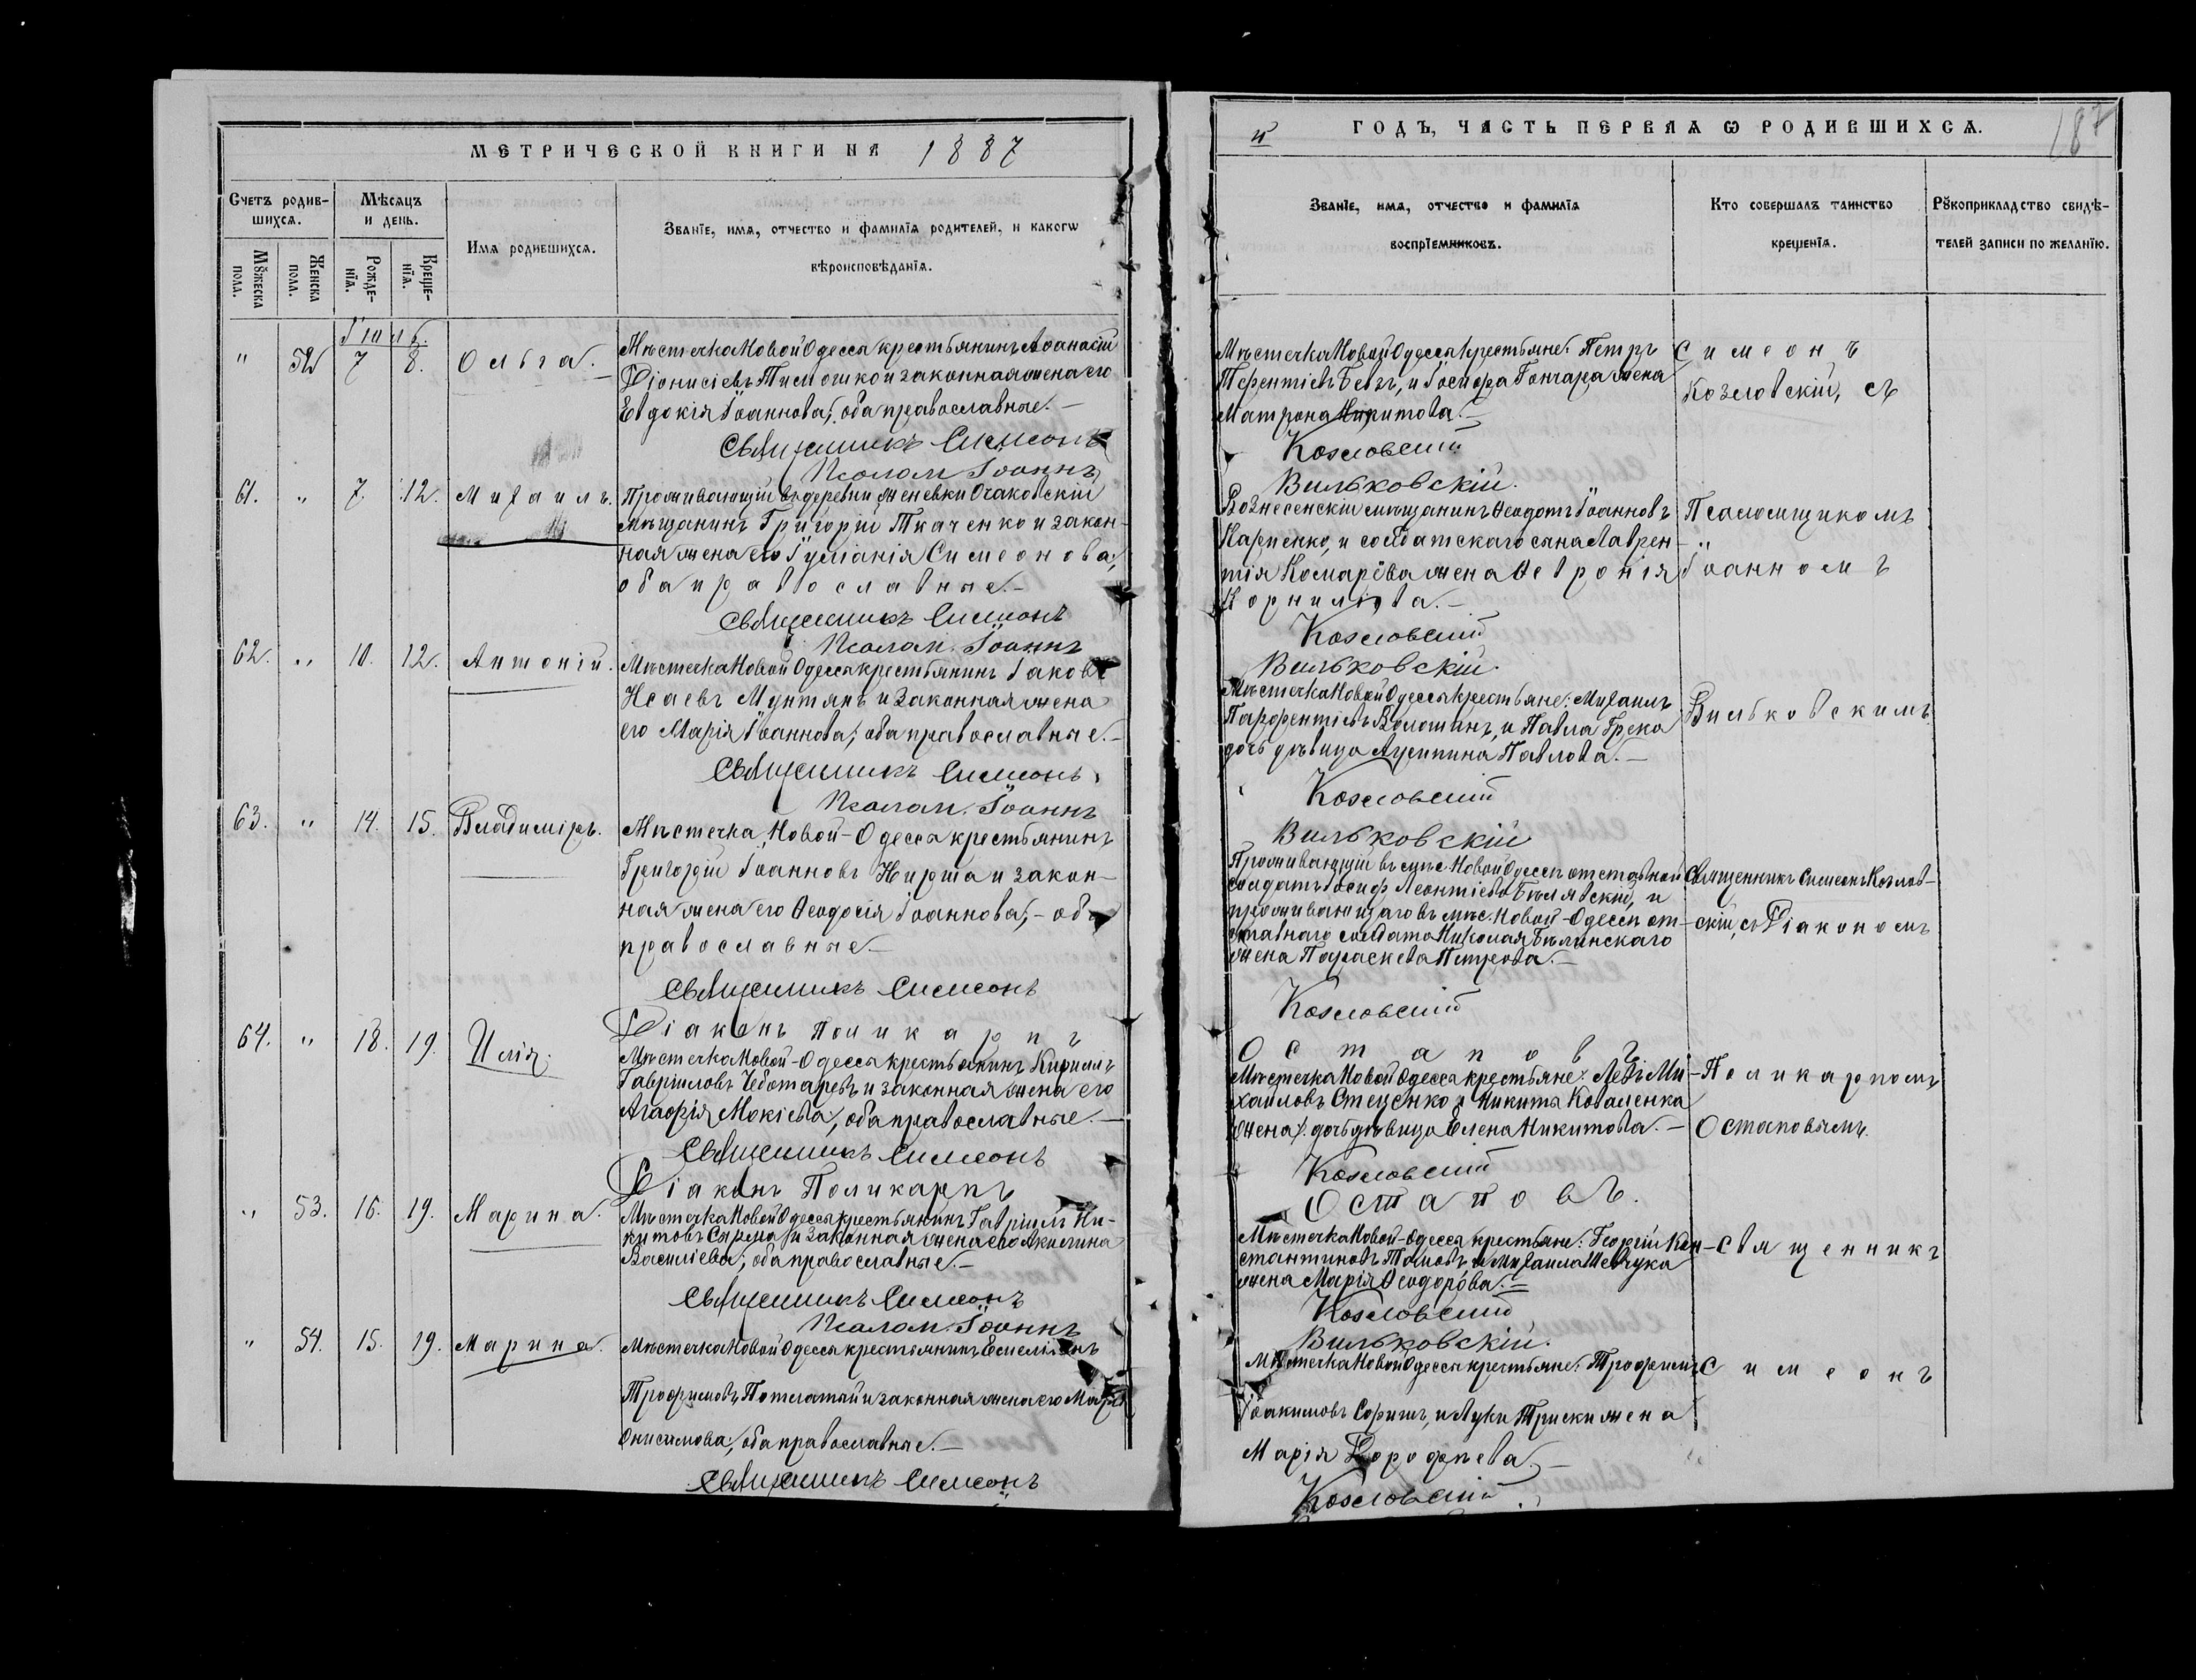 МЕТРИЧЕСКОЙ КНИГИ НА 1887
Счетъ родив-
шихся.
Мѣсяцъ
и день.
Имя родившихся.
Званіе, имя, отчество и фамилія родителей, и какогѡ
вѣроисповѣданія.
Мꙋжеска
пола.
Женска
пола.
Рожде-
нія.
Креще-
нія.
Іюль.
" 52 7 8. Ольга.
Мѣстечка Новой Одессы крестьянинъ Аѳанасій
Діонисіевъ Тимошко и законная жена его
Евдокія Іоаннова; оба православные.-
Священникъ Симеонъ
Псалом. Іоаннъ
61. " 7. 12. Михаилъ.
Проживающій въ деревни Женевки Очаковскій
мѣщанинъ Григорій Ткаченко и закон-
ная жена его Іуліанія Симеонова;
оба православные.-
Священникъ Симеонъ
Псалом. Іоаннъ
62. " 10. 12. Антоній.
Мѣстечка Новой Одессы крестьянинъ Іаковъ
Исаевъ Мунтянъ и законная жена
его Марія Іоаннова; оба православные.-
Священникъ Симеонъ
Псалом. Іоаннъ
63. " 14. 15. Владиміръ.
Мѣстечка Новой-Одессы крестьянинъ
Григорій Іоанновъ Кирша и закон-
ная жена его Ѳеодосія Іоаннова;- оба
православные.-
Священникъ Симеонъ
Діаконъ Поликарпъ
64. " 18. 19. Илія.
Мѣстечка Новой-Одессы крестьянинъ Кириллъ
Гавріиловъ Чеботаревъ и законная жена его
Агафія Мокіева, оба православные.-
Священникъ Симеонъ
Діаконъ Поликарпъ
" 53. 16. 19. Марина.
Мѣстечка Новой Одессы крестьянинъ Гавріилъ Ни-
китовъ Сырма и законная жена его Акилина
Василіева; оба православные.-
Священникъ Симеонъ
Псалом. Іоаннъ
" 54. 15. 19. Марина.
Мѣстечка Новой Одессы крестьянинъ Емеліанъ
Трофимовъ и законная жена его Марія
Онисимова; оба православные.-
Священникъ Симеонъ
й ГОДЪ, ЧАСТЬ ПЕРВАЯ Ѡ РОДИВШИХСЯ. 187
Званіе, имя, отчество и фамилія
воспріемниковъ.
Кто совершалъ таинство
крещенія.
Рꙋкоприкладство свидѣ-
телей записи по желанію.
Мѣстечка Новой Одессы крестьяне: Петръ
Терентіевъ Бевзъ, и Іосифа Гончара жена
Матрона Никитова.-
Козловскій
Вильковскій.
Вознесенскій мѣщанинъ Ѳеодотъ Іоанновъ
Карпенко, и солдатскаго сына Лаврен-
тія Комарева жена Ѳевронія
Корниліова.-
Козловскій
Вильковскій.
Мѣстечка Новой Одессы крестьяне: Михаилъ
Парфентіевъ Волошинъ, и Павла Грека
дочь дѣвица Агрипина Павлова.-
Козловскій
Вильковскій
Проживающій въ мѣс. Новой Одессѣ отставной
солдатъ Іосифъ Леонтіевъ Бѣлявскій, и
проживающаго въ мѣс. Новой-Одессѣ от-
ставнаго солдата Николая Бѣлинскаго
жена Параскева Петрова.-
Козловскій
Остаповъ
Мѣстечка Новой Одессы крестьяне: Левъ Ми-
хаиловъ Стеценко и Никиты Коваленка
жена/: дочь дѣвица Елена Никитова.-
Козловскій
Остаповъ.
Мѣстечка Новой-Одессы крестьяне: Георгій Кон-
стантиновъ и Михаила Шевчука
жена Марія Ѳеодорова.=
Козловскій
Вильковскій.
Мѣстечка Новой Одессы крестьяне: Трофимъ
Іоакимовъ и Луки жена
Марія Дорофѣева.-
Козловскій
Симеонъ
Козловскій, съ
Псаломщикомъ
Іоанномъ
Вильковскимъ.
Священникъ Симеонъ Козлов-
скій, съ Діакономъ
Поликарпомъ
Остаповымъ.
Священникъ
Симеонъ